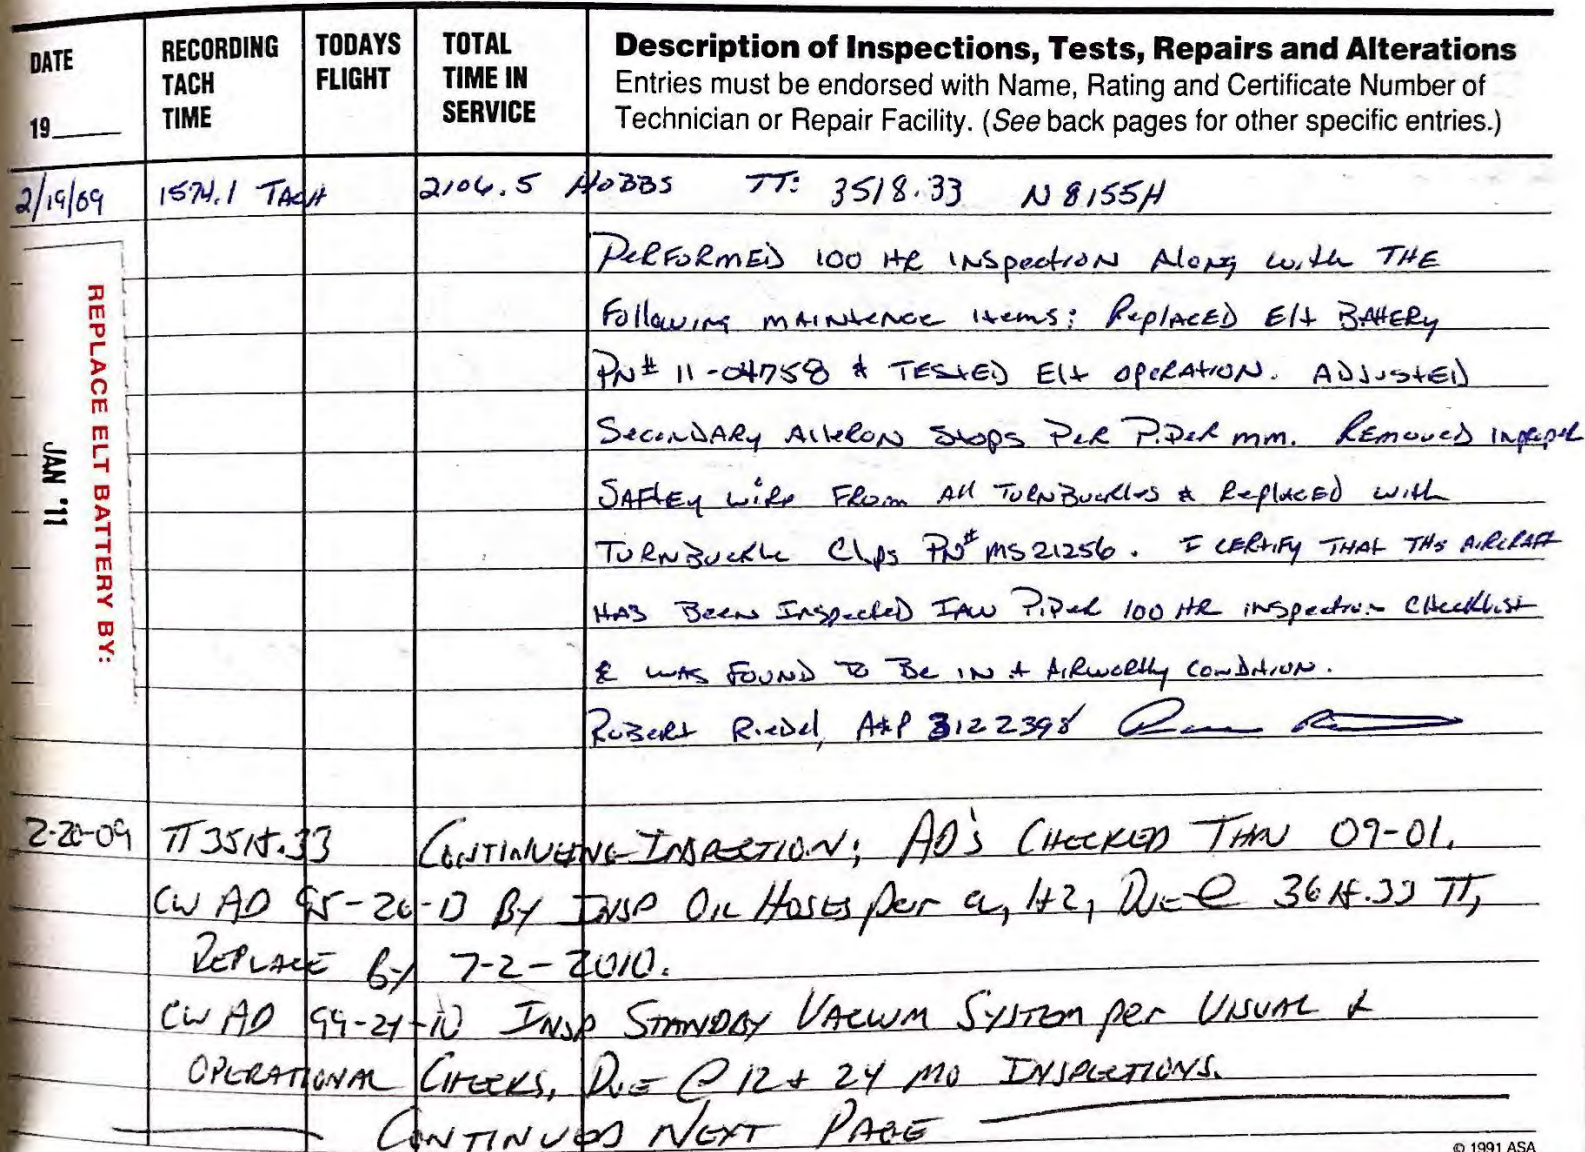 DATE
19
RECORDING
TACH
TIME
TODAYS
FLIGHT
TOTAL
TIME IN
SERVICE
Description of Inspections, Tests, Repairs and Alterations
Entries must be endorsed with Name, Rating and Certificate Number of
Technician or Repair Facility. (See back pages for other specific entries.)
2/19/09 1574.1 TACH 2106.5 HOBBS TT: 3518.33 N8155H
PERFORMED 100 HR INSpection Along with THE
Following MAINtENce Items: RePlACED Elt BAttERy
PN# 11-04758 & TEStED Elt OPeRAtION. ADJUStED
SeconDARy AIleRON Stops PeR PiPeR mm. REmoveD
SAFtEy wiRe FRom All TuRNBuckles & RePlACED with
TuRNBuckle Clips PN# MS21256. I CERtIFy THAt THs AiRCRAFt
HAS BeeN InspecteD IAW PiPeR 100 HR inspection CHecklist
& wAS FouND To Be IN A AiRwoRtHy ConDitioN.
RoBeRt RieDel, A&P 3122398
REPLACE ELT BATTERY BY:
JAN '11
2-20-09 TT 3518.33 CONTINUEING INSPECTION; AD'S CHECKED THRU 09-01.
CW AD 95-26-13 BY INSP OIL HOSES per 1+2, DUE @ 3618.33 TT,
REPLACE By 7-2-2010.
CW AD 99-24-10 INSP STANDBY VACUUM SYSTEM per VISUAL &
OPERATIONAL CHECKS, DUE @ 12 + 24 MO INSPECTIONS.
CONTINUED NEXT PAGE
© 1991 ASA